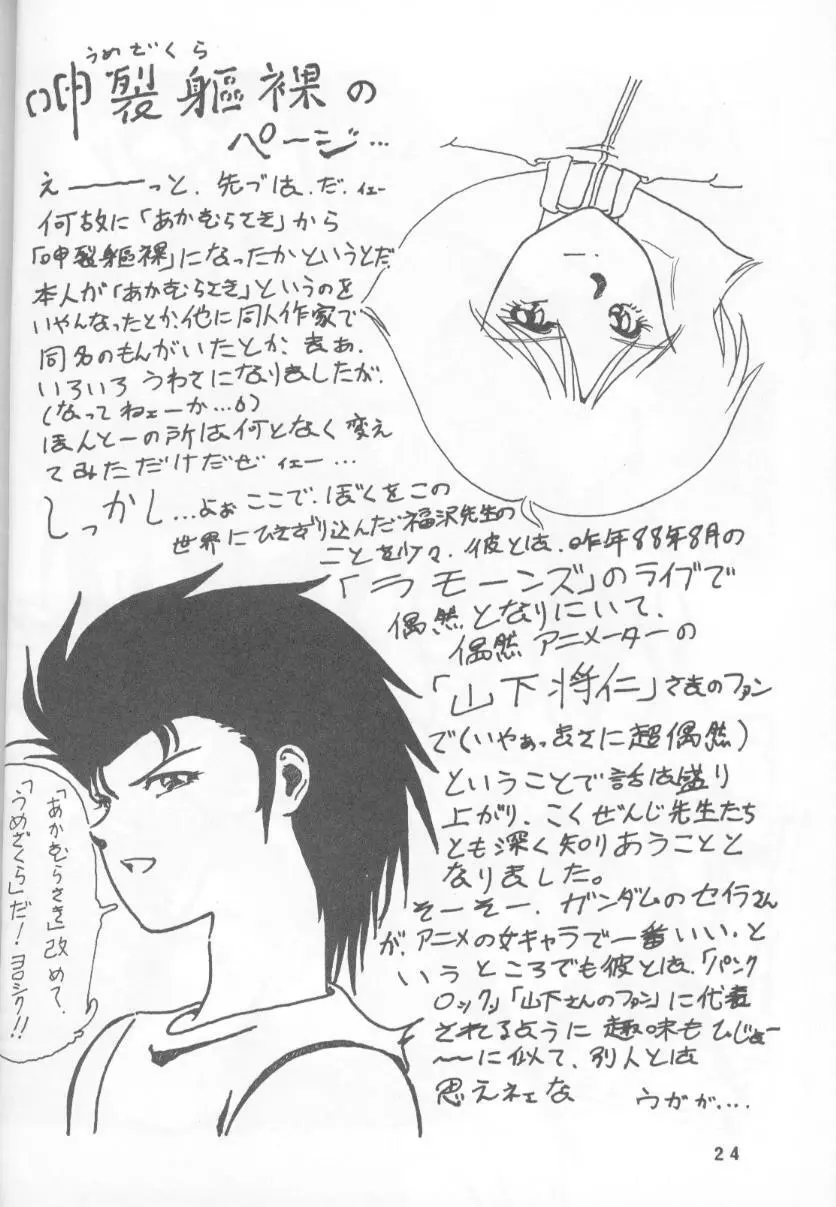 うめざくら
呻裂軀裸の
ページ…
えーーっと、先づは、だ、イェー
何故に「あかむらさき」から
「呻裂軀裸」になったかというとだ、
本人が「あかむらさき」というのを
いやんなったとか、他に同人作家で
同名のもんがいたとか、まぁ、
いろいろ うわさになりましたが、
(なってねェーか…)
ほんとーの所は何となく変え
てみただけだぜ イェー…
しっかし…よぉ ここで、ぼくをこの
世界にひきずり込んだ福沢先生の
ことを少々、彼とは、昨年88年8月の
「ラモーンズ」のライブで
偶然となりにいて、
偶然アニメーターの
「山下将仁」さまのファン
で(いやぁっまさに超偶然)
ということで話は盛り
上がり、こくぜんじ先生たち
とも深く知りあうことと
なりました。
そーそー、ガンダムのセイラさん
が、アニメの女キャラで一番いい、と
いうところでも彼とは、「パンク
ロック」「山下さんのファン」に代表
されるように趣味もひじょー
〜〜に似て、別人とは
思えネェな ウガガ....
「あかむらさき」改めて、
「うめざくら」だ!ヨロシク!!
24